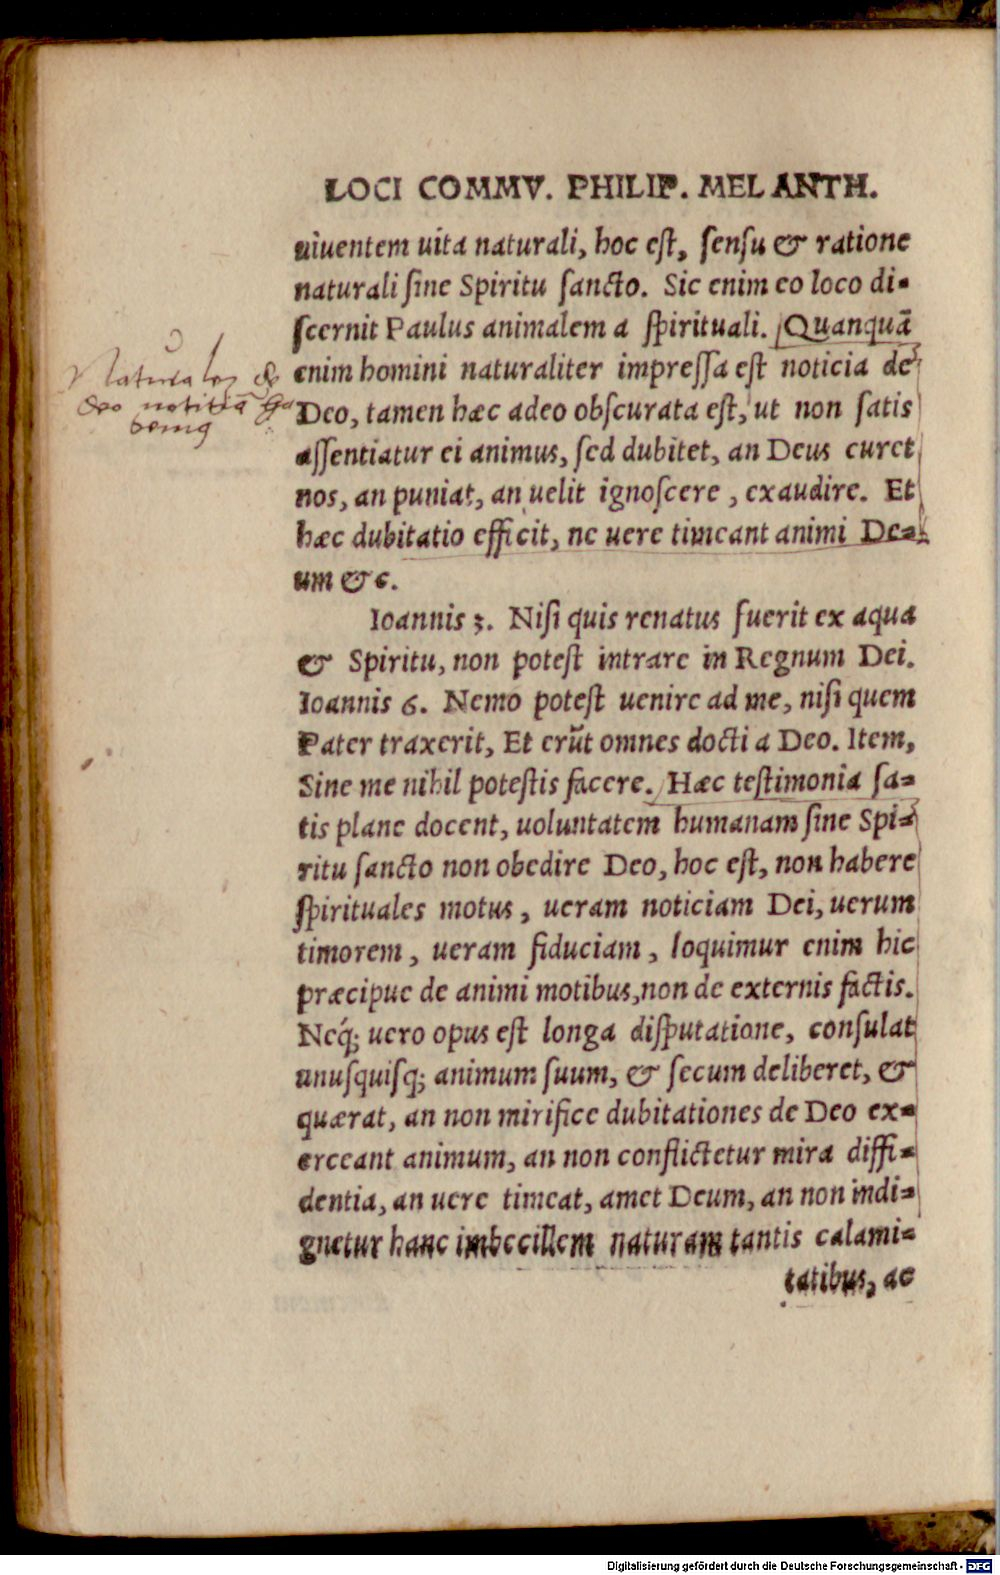 LOCI COMMV. PHILIP. MELANTH.
uiuentem uita naturali, hoc est, sensu & ratione
naturali sine Spiritu sancto. Sic enim eo loco di-
scernit Paulus animalem a spirituali. Quanquã
enim homini naturaliter impressa est noticia de
Deo, tamen hæc adeo obscurata est, ut non satis
assentiatur ei animus, sed dubitet, an Deus curet
nos, an puniat, an uelit ignoscere, exaudire. Et
hæc dubitatio efficit, ne uere timeant animi De-
um &c.
Ioannis 3. Nisi quis renatus fuerit ex aqua
& Spiritu, non potest intrare in Regnum Dei.
Ioannis 6. Nemo potest uenire ad me, nisi quem
Pater traxerit, Et erũt omnes docti a Deo. Item,
Sine me nihil potestis facere. Hæc testimonia sa-
tis plane docent, uoluntatem humanam sine Spi-
ritu sancto non obedire Deo, hoc est, non habere
spirituales motus, ueram noticiam Dei, uerum
timorem, ueram fiduciam, loquimur enim hic
præcipue de animi motibus, non de externis factis.
Neq́; uero opus est longa disputatione, consulat
unusquisq; animum suum, & secum deliberet, &
quærat, an non mirifice dubitationes de Deo ex-
erceant animum, an non conflictetur mira diffi-
dentia, an uere timeat, amet Deum, an non indi-
gnetur hanc imbecillem naturam tantis calami-
tatibus, ac
Naturalem de
deo notitiã
Digitalisierung gefördert durch die Deutsche Forschungsgemeinschaft - DFG